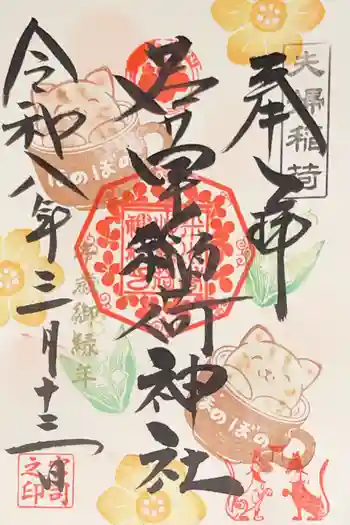 奉拝
夫婦稲荷
稲荷神社
御縁年
令和八年三月十三日
ほのぼの
ほのぼの
宮司之印